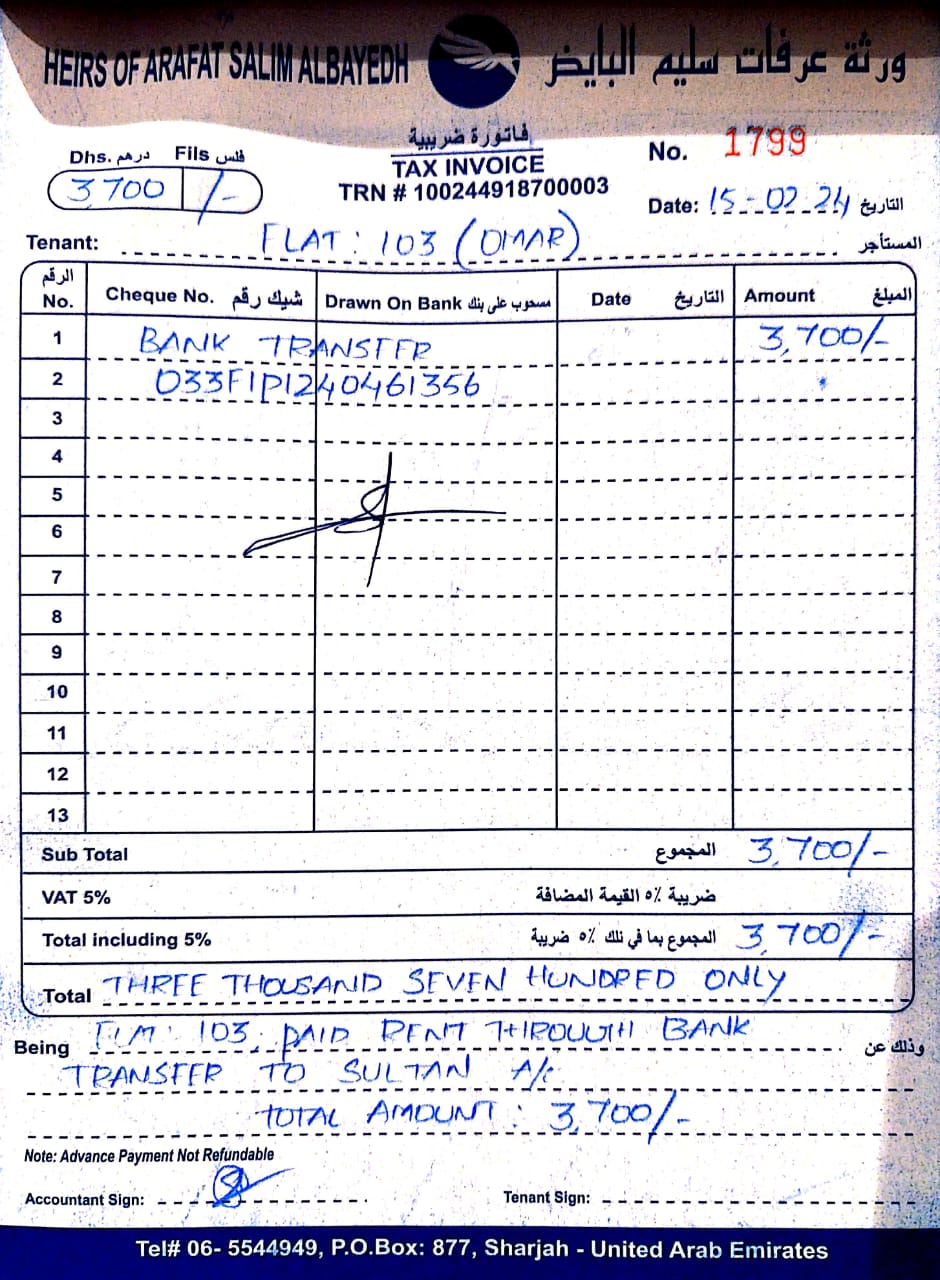 HEIRS OF ARAFAT SALIM ALBAYEDH ورثة عرفات سليم البايض
فاتورة ضريبية
TAX INVOICE
TRN # 100244918700003
Dhs. درهم Fils فلس
3,700 /-
No. 1799
Date: 15-02-24 التاريخ
Tenant: FLAT: 103 (OMAR) المستأجر
الرقم No. Cheque No. شيك رقم Drawn On Bank مسحوب على بنك Date التاريخ Amount المبلغ
1 BANK TRANSFER 3,700/-
2 033F1P1240461356
3
4
5
6
7
8
9
10
11
12
13
Sub Total المجموع 3,700/-
VAT 5% ضريبة ٥٪ القيمة المضافة
Total including 5% المجموع بما في ذلك ٥٪ ضريبة 3,700/-
Total THREE THOUSAND SEVEN HUNDRED ONLY
Being FLAT: 103, PAID RENT THROUGH BANK وذلك عن
TRANSFER TO SULTAN A/c
TOTAL AMOUNT: 3,700/-
Note: Advance Payment Not Refundable
Accountant Sign: Tenant Sign:
Tel# 06- 5544949, P.O.Box: 877, Sharjah - United Arab Emirates